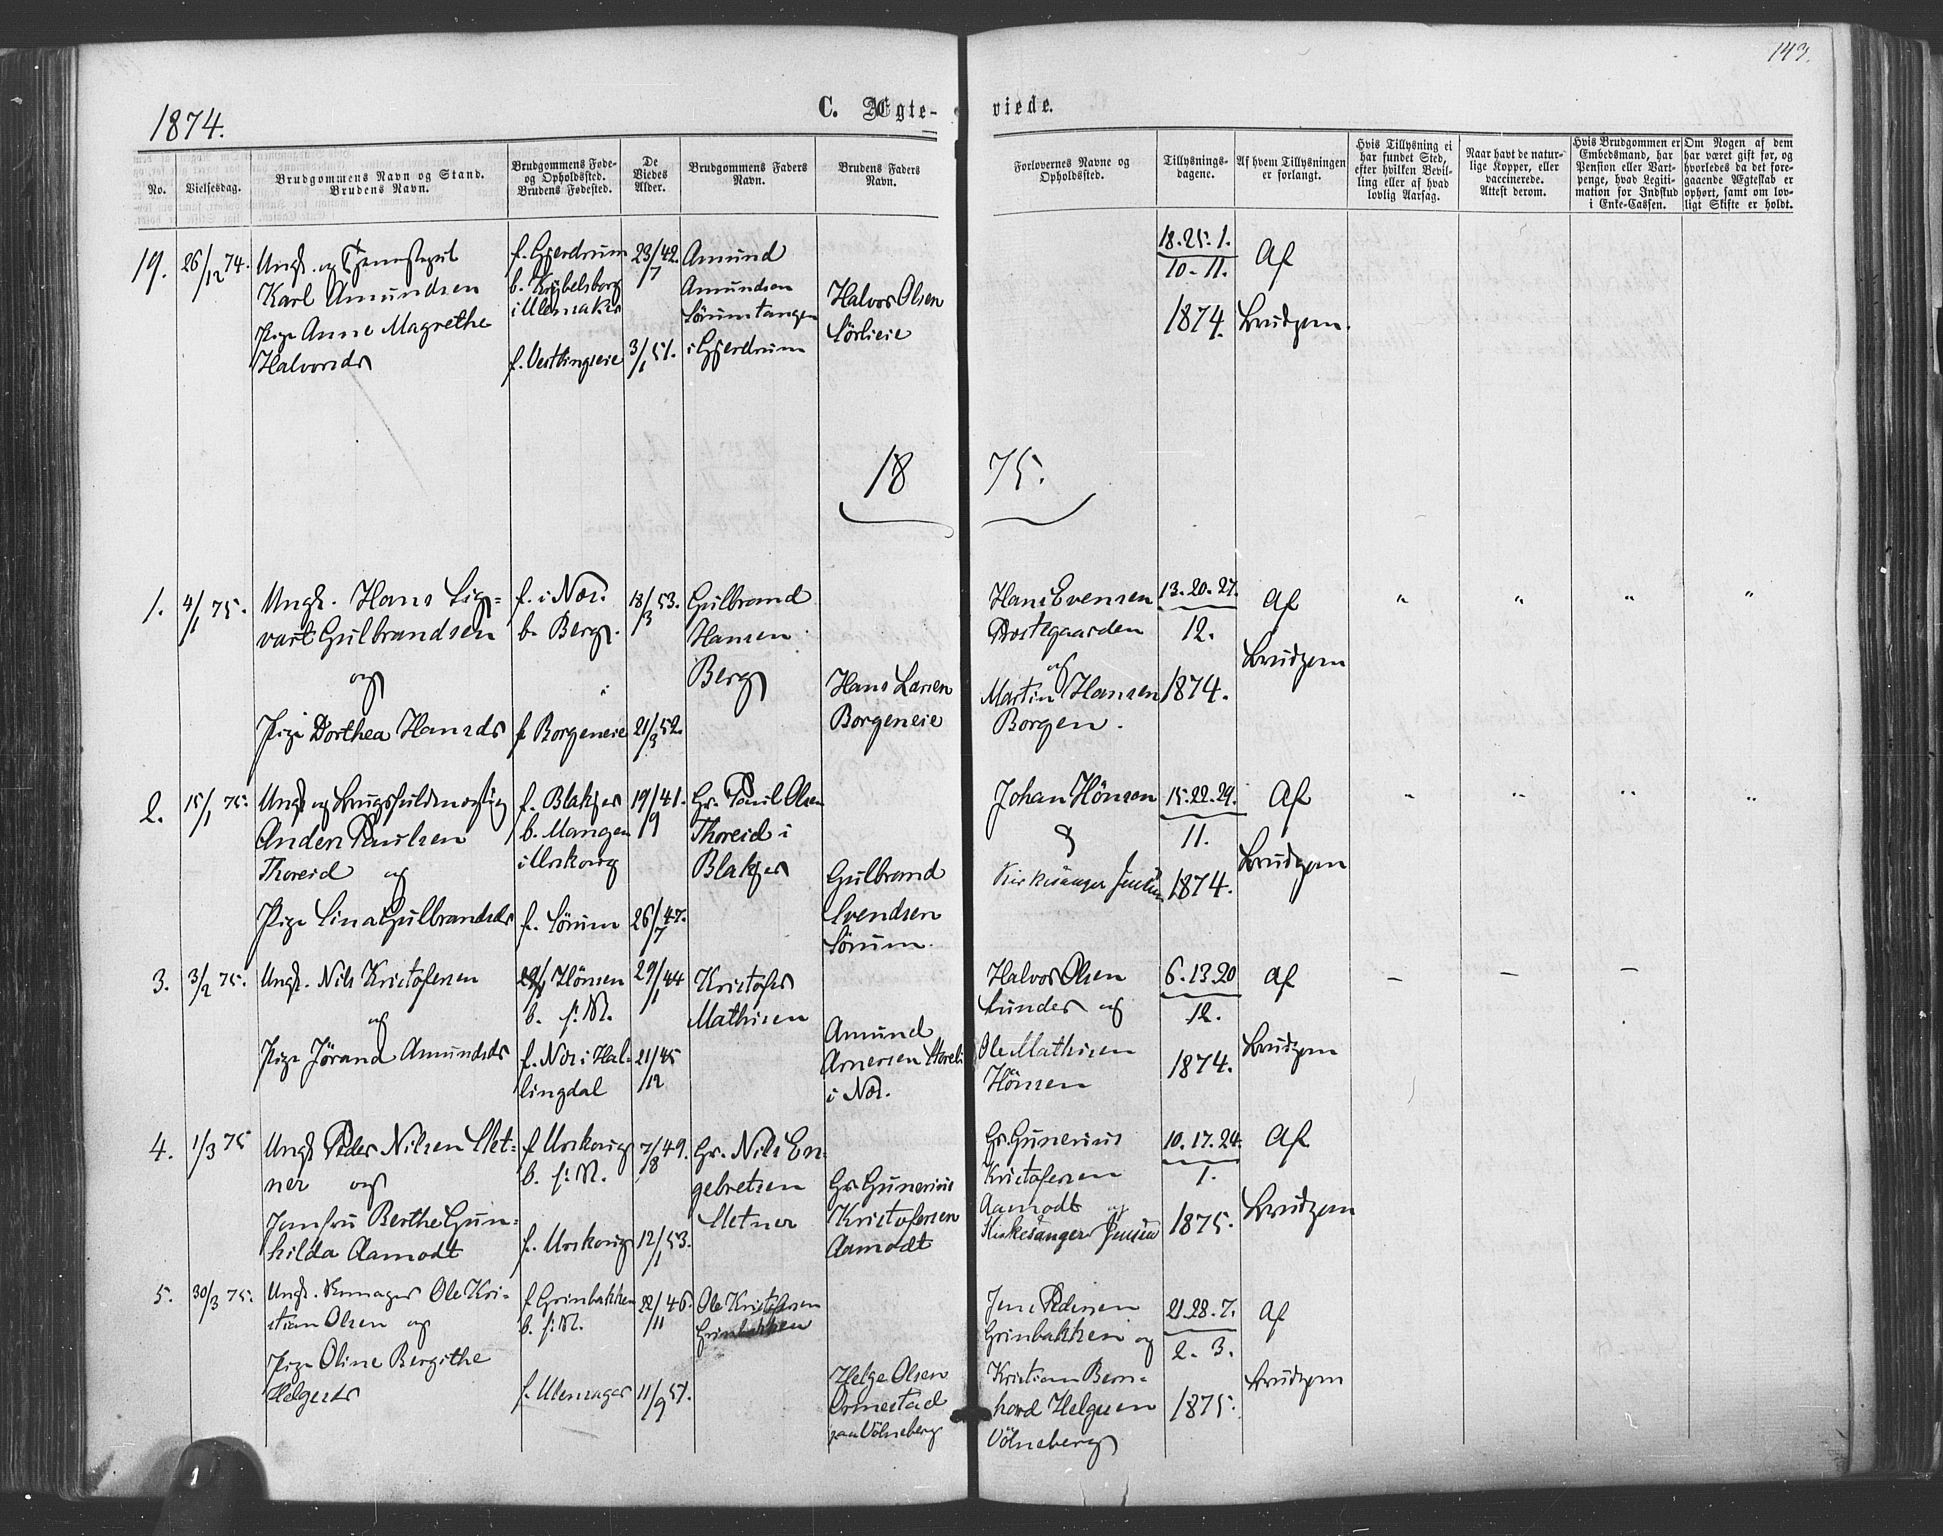 143.
1874.
C. Ægte-viede.
No.
Vielsesdag.
Brudgommens Navn og Stand.
Brudens Navn.
Brudgommens Føde-
og Opholdssted.
Brudens Fødested.
De
Viedes
Alder.
Brudgommens Faders
Navn.
Brudens Faders
Navn.
Forlovernes Navne og
Opholdssted.
Tillysnings-
dagene.
Af hvem Tillysningen
er forlangt.
Hvis Tillysning ei
har fundet Sted,
efter hvilken Bevil-
ling eller af hvad
lovlig Aarsag.
Naar havt de natur-
lige Kopper, eller
vaccinerede.
Attest derom.
Hvis Brudgommen er
Embedsmand, har
Pension eller Vart-
penge, hvad Legiti-
mation for Indskud
i Enke-Cassen.
Om Nogen af dem
har været gift før, og
hvorledes da det fore-
gaaende Ægteskab er
ophørt, samt om lov-
ligt Skifte er holdt.
19.
26/12 74.
Ungk. og
Karl Amundsen
Pige Anne Magrethe
Halvorsds
f. Gjerdrum
b.
f.
23/7 42.
3/1 51.
Amund
Amundsen
Sörumtangen
i Gjerdrum
Halvor Olsen
Sörlieie
18. 25. 1.
10. 11.
1874.
Af
Brudgom.
18 75.
1.
4/1 75.
Ungk. Hans Sig-
vart Gulbrandsen
og
Pige Dorthea Hansds
f. i Næs.
b. Berg.
f. Borgeneie
18/3 53.
21/3 52.
Gulbrand
Hansen
Berg
Hans Larsen
Borgeneie
Hans Evensen
Præstegaarden
og
Martin Hansen
Borgen.
13. 20. 27.
12.
1874.
Af
Brudgom
" " " "
2.
15/1 75.
Ungk og Brugsfuldmægtig
Anders Paulsen
Thoreid og
Pige Lina Gulbrandsds
f. Blakjer
b. Mangen
i Urskoug
f. Sörum
19/9 41.
26/7 47.
Gr. Paul Olsen
Thoreid i
Blakjer
Gulbrand
Svendsen
Sörum.
Johan Hönsen
&
Kirkesanger Jensen
15. 22. 29.
11.
1874.
Af
Brudgom
" " " "
3.
3/2 75.
Ungk. Nils Kristofersen
og
Pige Jörand Amundsds
Hönsen
b. s: St.
f. Næs i Hal-
lingdal
29/1 44
21/12 45
Kristofer
Mathisen
Amund
Arnesen
i Næs.
Halvor Olsen
Lunder og
Ole Mathisen
Hönsen
6. 13. 20
12.
1874.
Af
Brudgom
– – –
4.
1/3 75
Ungk Peder Nilsen Met-
ner og
Jomfru Berthe Gun-
hilda Aamodt
f. Urskoug
b. s: St.
f. Urskoug
7/8 49.
12/1 53.
Gr. Nils En-
gebretsen
Metner
Gr. Gunerius
Kristofersen
Aamodt
Gr. Gunerius
Kristofersen
Aamodt og
Kirkesanger Jensen
10. 17. 24.
1.
1875.
Af
Brudgom
5.
30/3 75.
Ungk. Ole Kri-
stian Olsen og
Pige Oline Bergithe
Helgesds
f Grinbakken
b. s: St.
f. Ulensager
22/11 46.
11/9 51.
Ole Kristofersen
Grinbakken
Helge Olsen
Ormestad
paa Völneberg
Jens Pedersen
Grinbakken og
Kristian Bern-
hard Helgesen
Völneberg
21. 28. 7.
2. 3.
1875.
Af
Brudgom